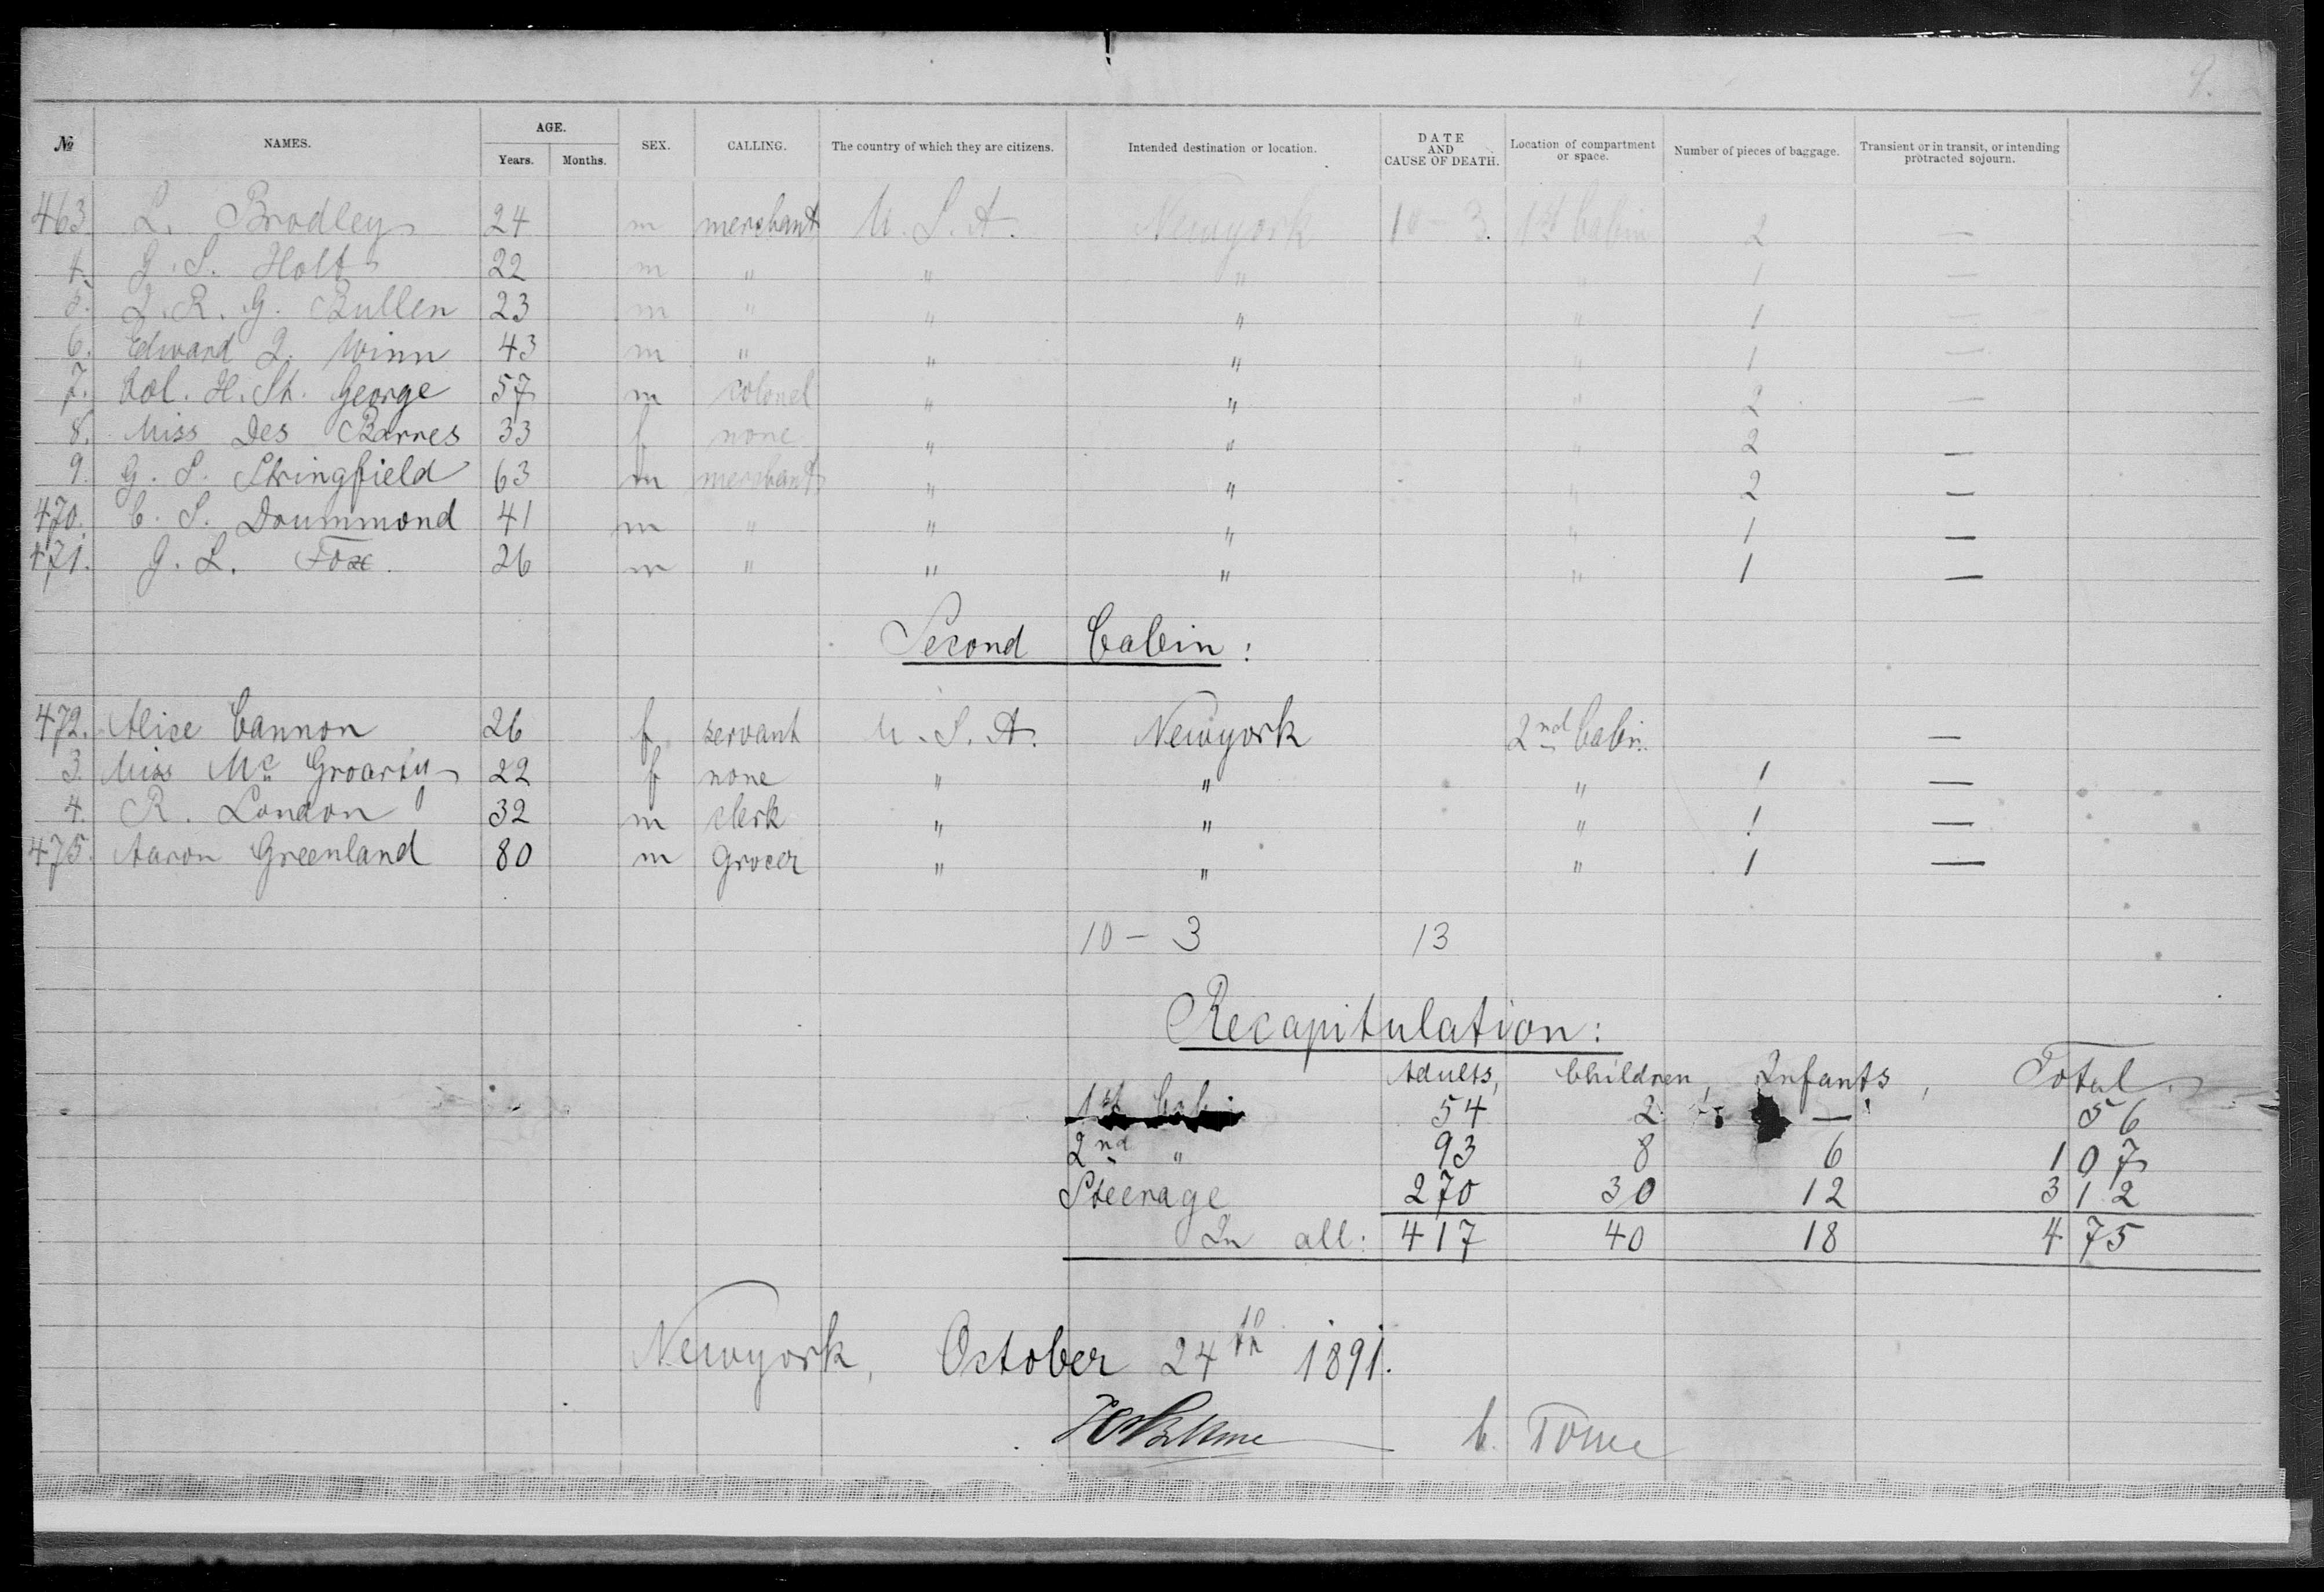 9.
№ NAMES. AGE. Years. Months. SEX. CALLING. The country of which they are citizens. Intended destination or location. DATE AND CAUSE OF DEATH. Location of compartment or space. Number of pieces of baggage. Transient or in transit, or intending protracted sojourn.
463. L. Bradley 24 m merchant U.S.A. Newyork 10 - 3. 1st Cabin 2 —
4. J. S. Holt 22 m " " " " 1 —
5. J. R. G. Bullen 23 m " " " " 1 —
6. Edward J. Winn 43 m " " " " 1 —
7. Col. H. St. George 57 m colonel " " " 2 —
8. Miss Des Barres 33 f none " " " 2 —
9. G. S. Stringfield 63 m merchant " " " 2 —
470. C. S. Drummond 41 m " " " " 1 —
471. G. L. Fox. 26 m " " " " 1 —
Second Cabin:
472. Alice Cannon 26 f servant U.S.A. Newyork 2nd Cabin —
3. Miss Mc Groarty 22 f none " " " 1 —
4. R. London 32 m clerk " " " 1 —
475. Aaron Greenland 80 m Grocer " " " 1 —
10 - 3 13
Recapitulation:
Adults, Children, Infants, Total.
1st Cabin 54 2 — 56
2nd " 93 8 6 107
Steerage 270 30 12 312
In all: 417 40 18 475
Newyork, October 24th 1891.